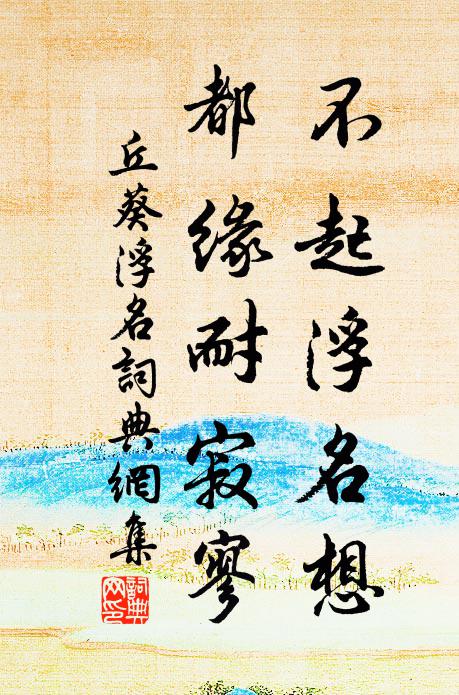 不起浮名想
都緣耐寂寥
丘葵浮名詞典網集
詞典網印